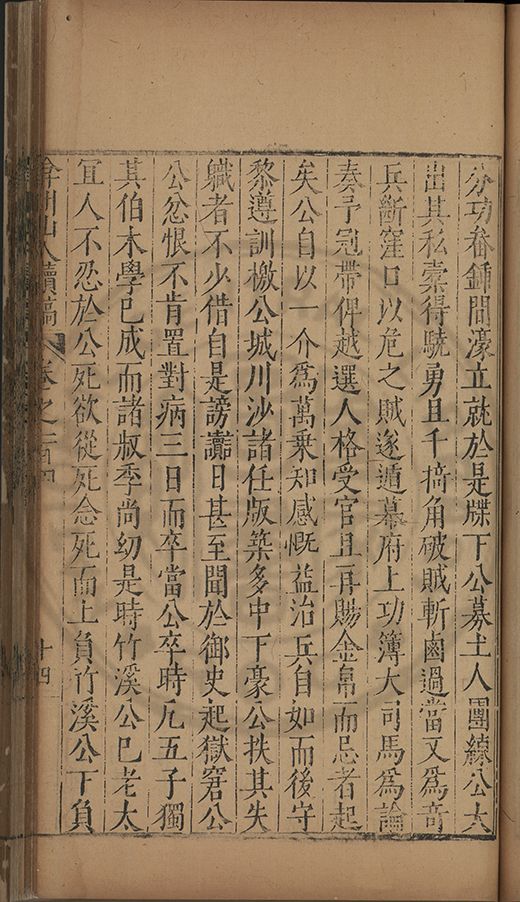 分功畚鍤間濠立就於是牒下公募土人團練公大
出其私橐得驍勇且千掎角破賊斬鹵過當又為奇
兵斷窪口以危之賊遂遁幕府上功簿大司馬為論
奏予冠帶俾越選人格受官且再賜金帛而忌者起
矣公自以一介為萬乗知感慨益治兵自如而後守
黎遵訓檄公城川沙諸任版築多中下豪公抶其失
職者不少借自是謗讟日甚至聞於御史起獄窘公
公忿恨不肯置對病三日而卒當公卒時凢五子獨
其伯木學已成而諸叔季尚幼是時竹溪公已老太
宜人不忍於公死欲從死念死而上負竹溪公下負
弇州山人續稿 卷之一百四 十四